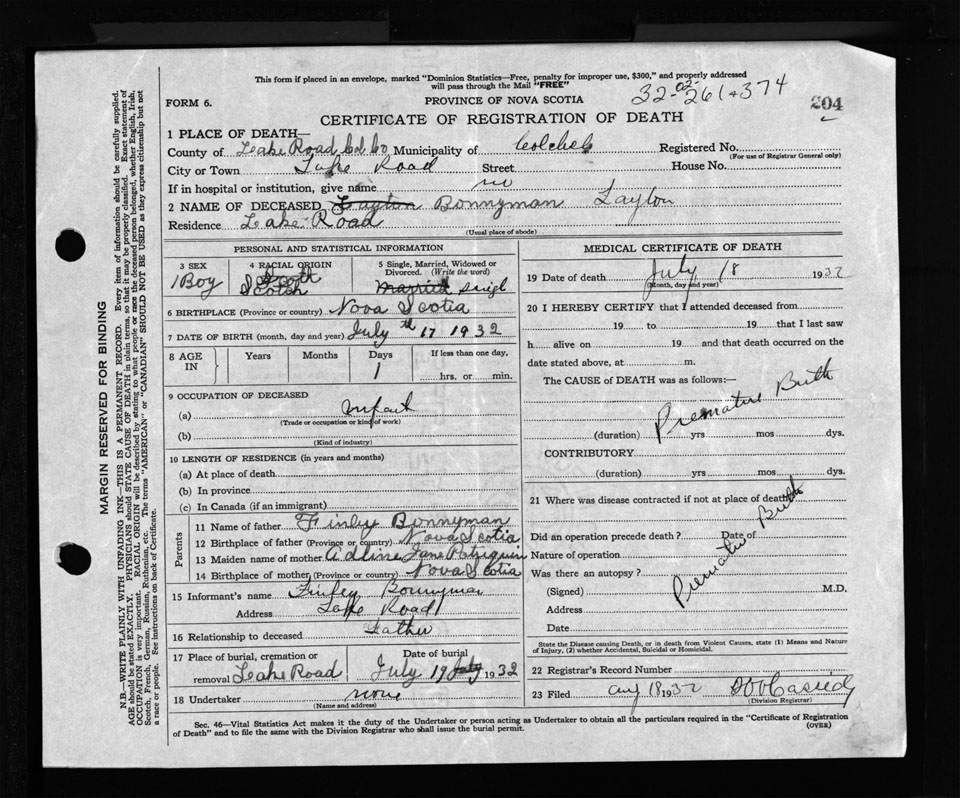 This form if placed in an envelope, marked "Dominion Statistics—Free, penalty for improper use, $300," and properly addressed
will pass through the Mail "FREE"
32-02-261+374
FORM 6.
PROVINCE OF NOVA SCOTIA
204
CERTIFICATE OF REGISTRATION OF DEATH
1 PLACE OF DEATH—
County of Lake Road Col. Co Municipality of Registered No.
(For use of Registrar General only)
City or Town Lake Road Street House No.
If in hospital or institution, give name no
2 NAME OF DECEASED Layton Bonnyman Layton
Residence Lake Road
(Usual place of abode)
PERSONAL AND STATISTICAL INFORMATION
3 SEX 4 RACIAL ORIGIN 5 Single, Married, Widowed or
Divorced. (Write the word)
Boy Scotch Married Singl
6 BIRTHPLACE (Province or country) Nova Scotia
7 DATE OF BIRTH (month, day and year) July th 17 1932
8 AGE IN Years Months Days If less than one day,
1 hrs. or min.
9 OCCUPATION OF DECEASED
(a) Infant
(Trade or occupation or kind of work)
(b)
(Kind of industry)
10 LENGTH OF RESIDENCE (in years and months)
(a) At place of death
(b) In province
(c) In Canada (if an immigrant)
Parents
11 Name of father Finley Bonnyman
12 Birthplace of father (Province or country) Nova Scotia
13 Maiden name of mother Adline Jane
14 Birthplace of mother (Province or country) Nova Scotia
15 Informant's name Finley Bonnyman
Address Lake Road
16 Relationship to deceased Father
17 Place of burial, cremation or Date of burial
removal Lake Road July 19 July 1932
18 Undertaker none
(Name and address)
MEDICAL CERTIFICATE OF DEATH
19 Date of death July 18 1932
(Month, day and year)
20 I HEREBY CERTIFY that I attended deceased from
19 to 19 that I last saw
h alive on 19 and that death occurred on the
date stated above, at m.
The CAUSE of DEATH was as follows:—
Premature Birth
(duration) yrs mos dys.
CONTRIBUTORY
(duration) yrs mos dys.
21 Where was disease contracted if not at place of death?
Did an operation precede death? Date of
Nature of operation
Was there an autopsy?
Premature Birth
(Signed) M.D.
Address
Date
State the Disease causing Death, or in death from Violent Causes, state (1) Means and Nature
of Injury, (2) whether Accidental, Suicidal or Homicidal.
22 Registrar's Record Number
23 Filed Aug 18 1932
(Division Registrar)
Sec. 46—Vital Statistics Act makes it the duty of the Undertaker or person acting as Undertaker to obtain all the particulars required in the "Certificate of Registration
of Death" and to file the same with the Division Registrar who shall issue the burial permit.
(OVER)
MARGIN RESERVED FOR BINDING
N.B.—WRITE PLAINLY WITH UNFADING INK—THIS IS A PERMANENT RECORD. Every item of information should be carefully supplied.
AGE should be stated EXACTLY. PHYSICIANS should STATE CAUSE OF DEATH in plain terms, so that it may be properly classified. Exact statement of
OCCUPATION is very important. RACIAL ORIGIN will be described by stating to what people or race the deceased person belonged, whether English, Irish,
Scotch, French, German, Russian, Ruthenian, etc. The terms "AMERICAN" or "CANADIAN" SHOULD NOT BE USED as they express citizenship but not
a race or people. See instructions on back of Certificate.